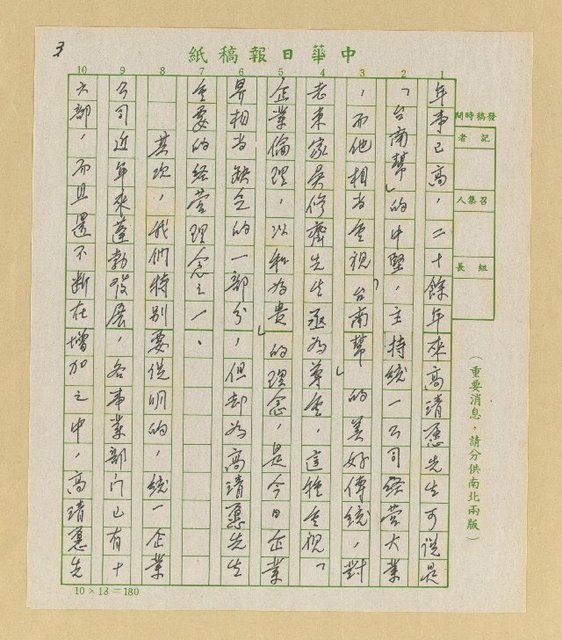 3
中華日報稿紙
發稿時間
記者
召集人
組長
(重要消息,請分供南北兩版)
1 2 3 4 5 6 7 8 9 10
年事已高,二十餘年來高清愿先生可說是
「台南幫」的中堅,主持統一公司經營大業
,而他相當重視「台南幫」的美好傳統,對
老東家吳修齊先生極為尊重,這種重視「
企業倫理,以和為貴」的理念,是今日企業
界相當缺乏的一部分,但却為高清愿先生
重要的經營理念之一。
其次,我們特別要說明的,統一企業
公司近年來蓬勃發展,各事業部門已有十
六部,而且還不斷在增加之中,高清愿先
10×18=180